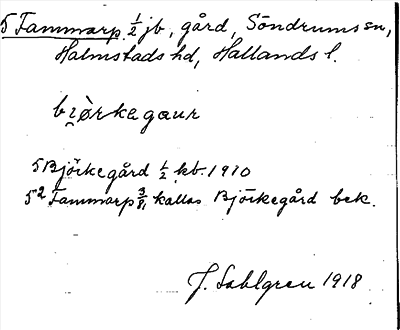 5 Tammarp ½ jb, gård, Söndrums sn,
Halmstads hd, Hallands l.
bi̯ òrkagaur
5 Björkegård ½ kb. 1910
5² Tammarp 3/8, kallas Björkegård bek.
J. Sahlgren 1918